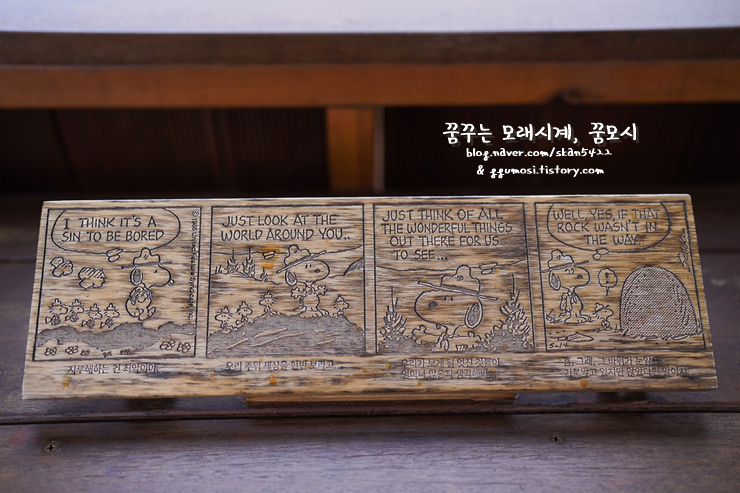 꿈꾸는 모래시계, 꿈모시
blog.naver.com/skan5422
& ggumosi.tistory.com
I THINK IT'S A
SIN TO BE BORED
JUST LOOK AT THE
WORLD AROUND YOU..
JUST THINK OF ALL
THE WONDERFUL THINGS
OUT THERE FOR US
TO SEE...
WELL, YES, IF THAT
ROCK WASN'T IN
THE WAY..
지루해하는 건 죄악이야.
우리 주위 세상을 한번 보라고...